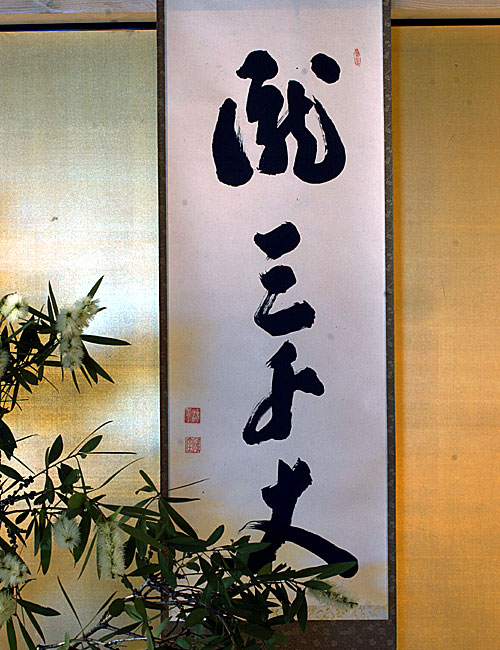 瀧三千丈